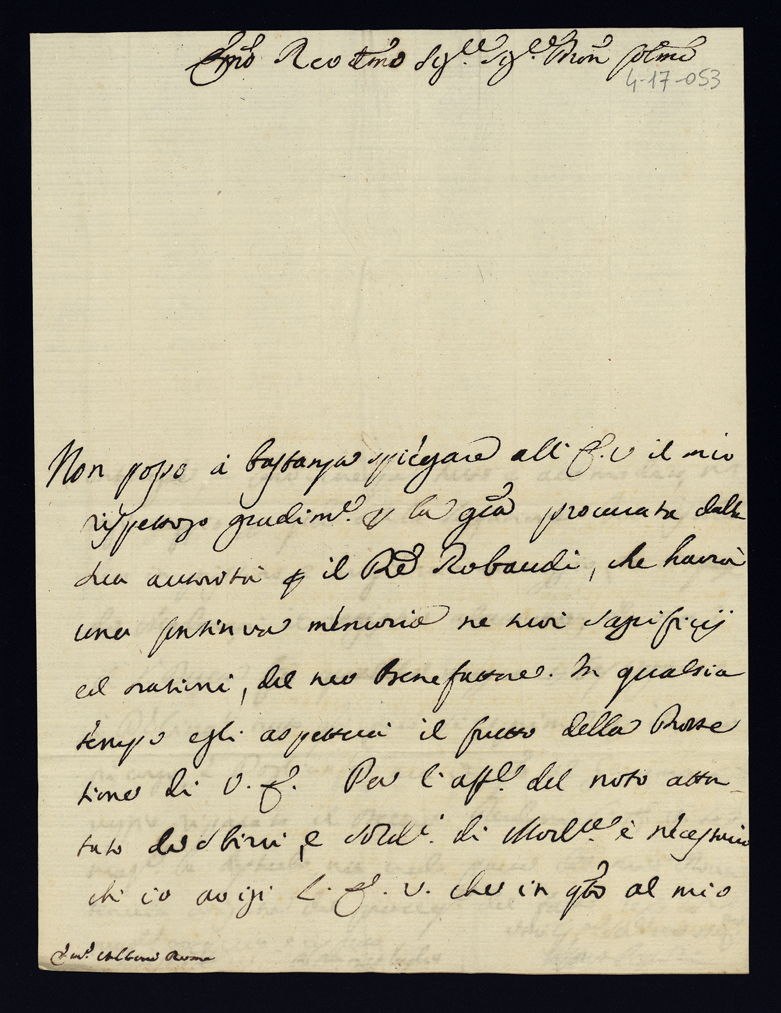 Em̃o Rev d̃mo Sig.re Sig.re Pron̄ Colm̃o
4-17-053
Non posso à bastanza spiegare all' E. V. il mio
rispettoso gradim.to p la gr̃a procurata dalla
sua autorità p il Robaudi, che havrà
una continva memoria ne suoi sagrificij
ed orationi, del suo Benefattore. In qualsia
tempo egli aspetterà il frutto della Prote
tione di V. E. Per l'aff.re del noto atten-
tato de Sbirri, e sold.i di è necessario
ch' io avisi l' E. V. che in q̃to al mio
Albani Roma